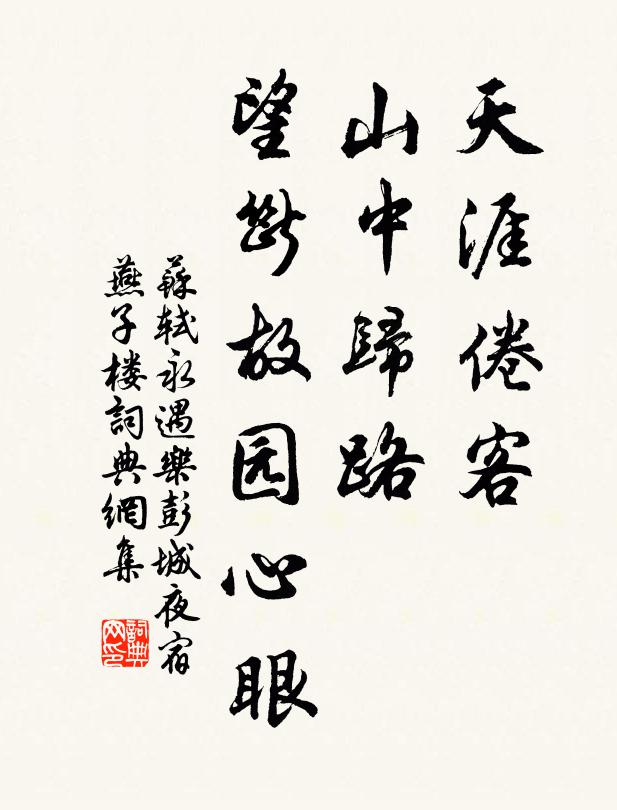 天涯倦客
山中歸路
望斷故园心眼
蘇軾永遇樂彭城夜宿
燕子楼詞典網集
詞典
网印